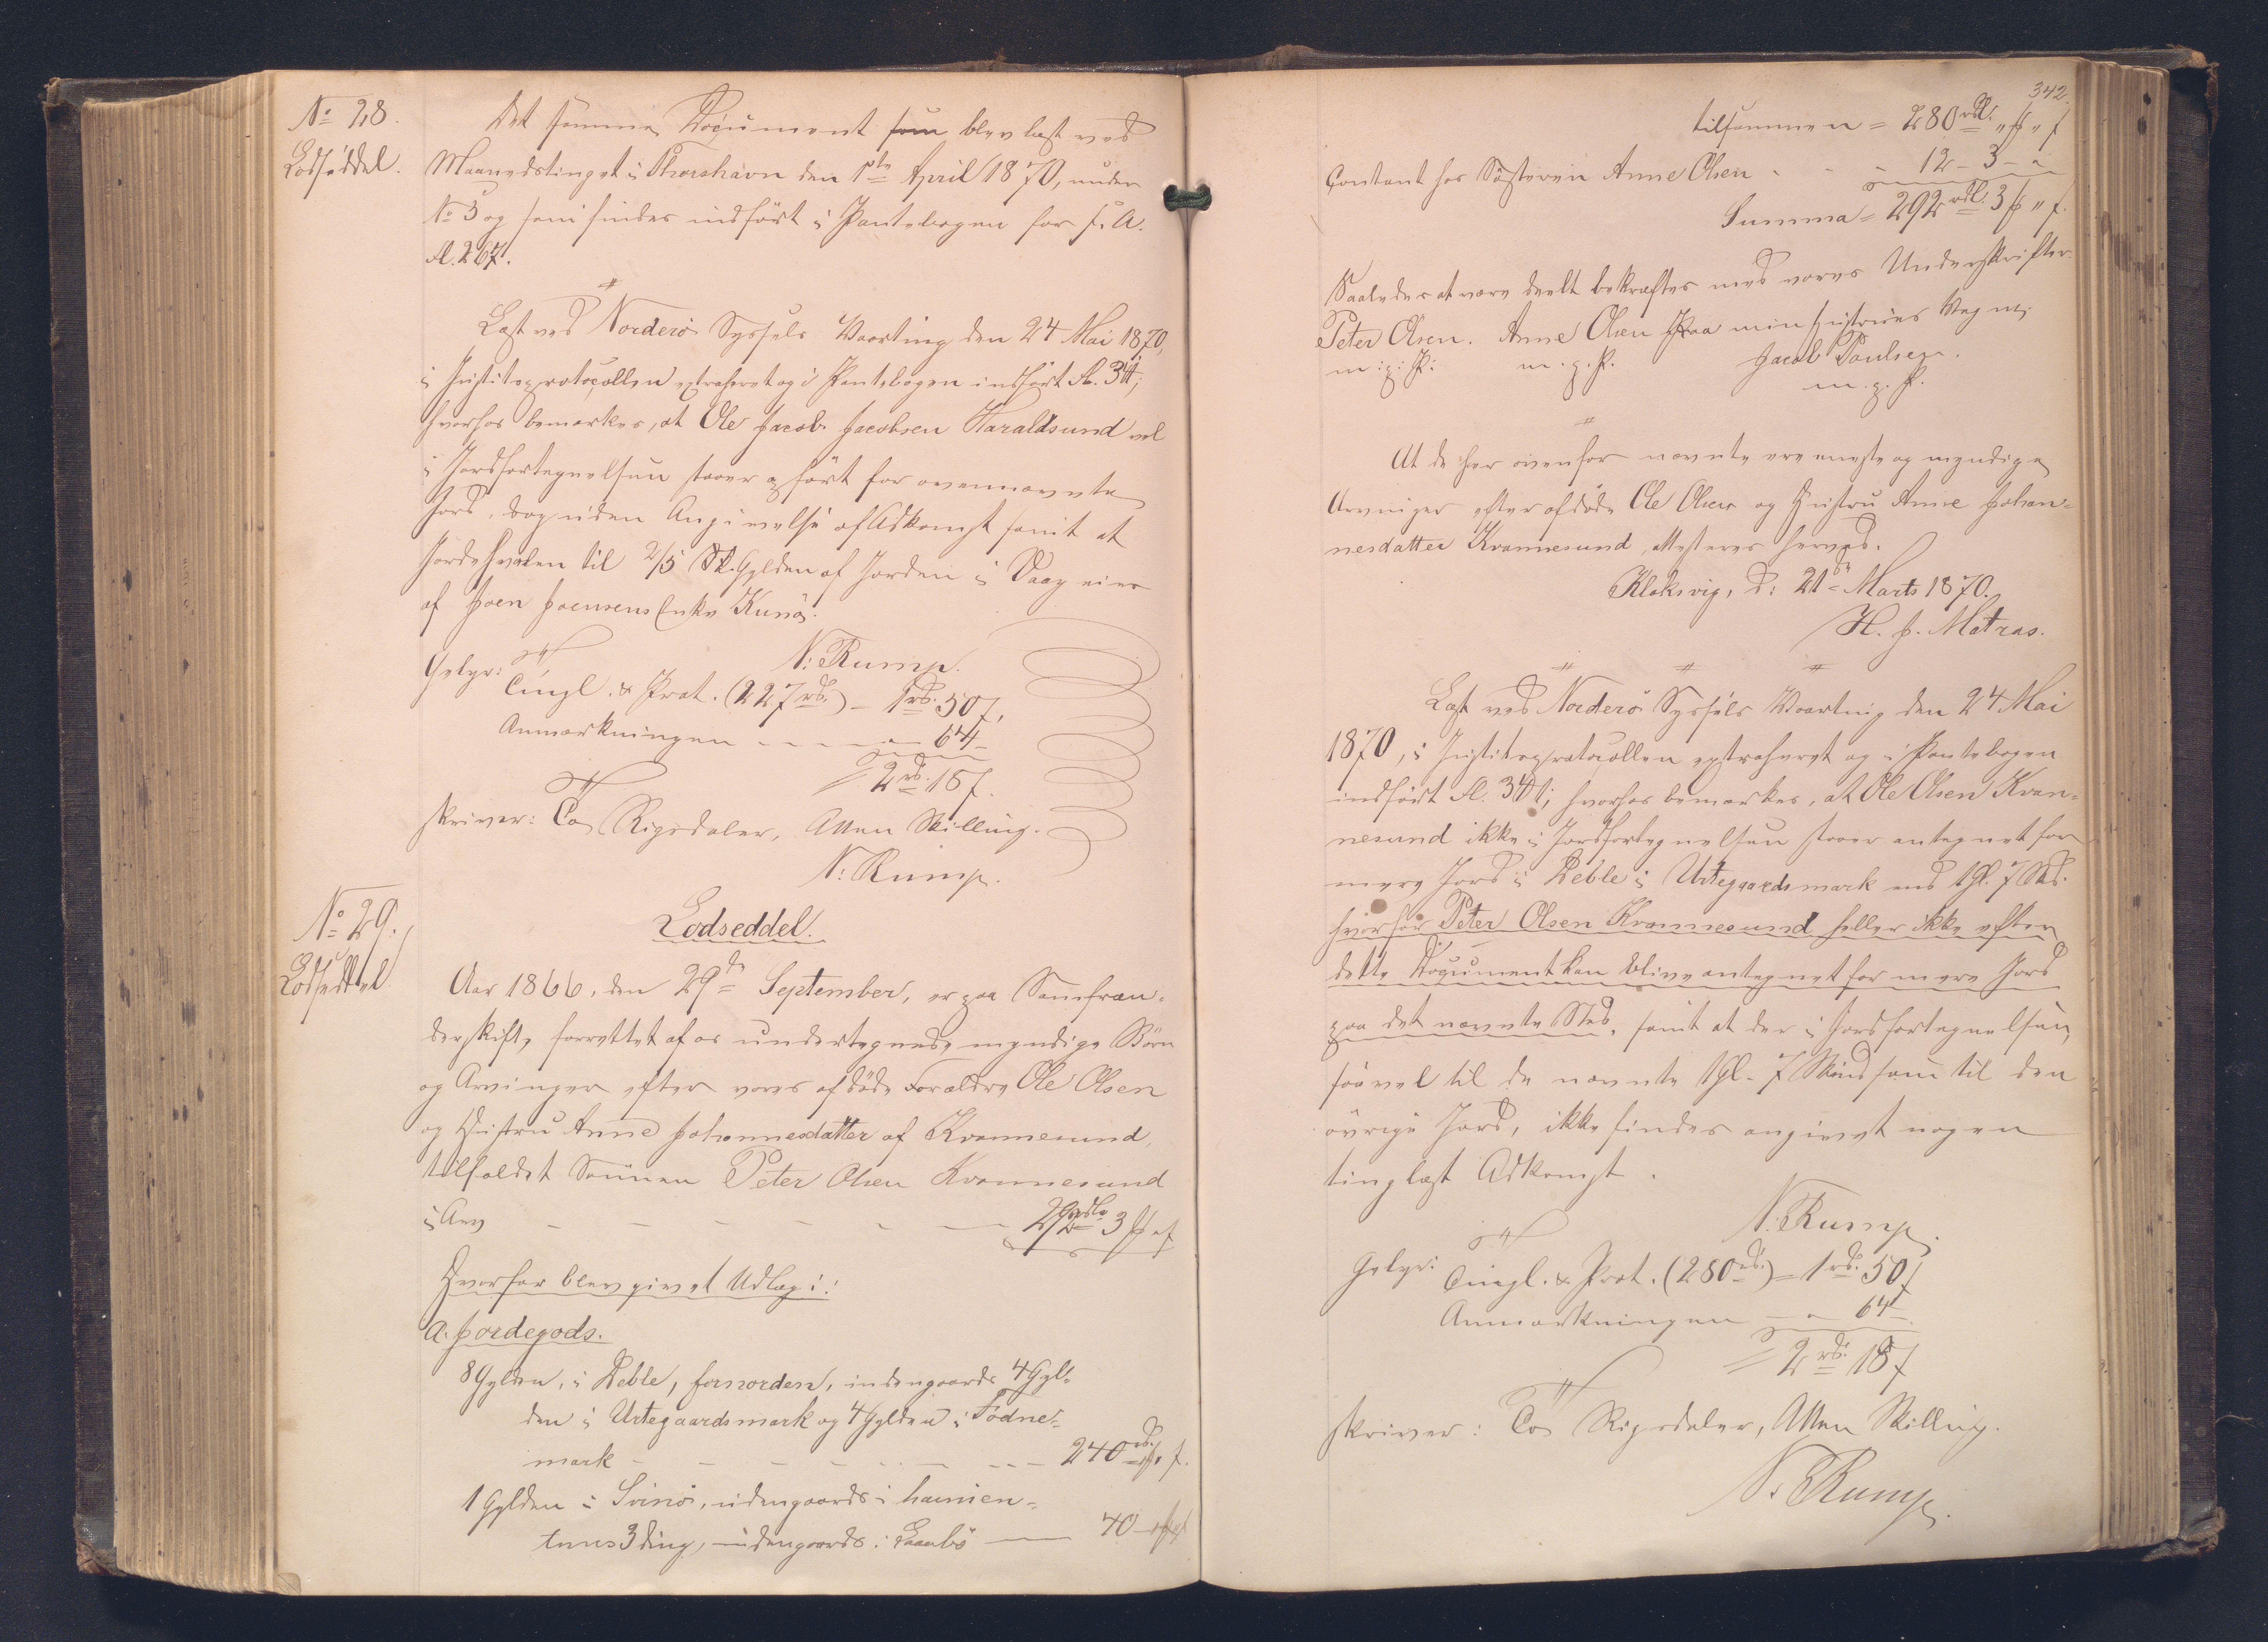 No 28.
Lodseddel.
Det samme Document som blev læst ved
Maanedstinget i Thorshavn den 1ste April 1870, under
No 3 og som findes indført i Pantebogen for s. A.
fl. 267.
Læst ved Norderø Syssels Vaarting den 24 Mai 1870,
i Justitsprotocollen extraheret og i Pantebogen indført fl. 341;
hvorhos bemærkes, at Ole Jacob Jacobsen Haraldsund vel
i Jordfortegnelsen staaer opført for ovennævnte
Jord, dog uden Angivelse af Adkomst samt at
Jordehvalen til 2/5 Sk. Gylden af Jorden i Vaag eies
af Joen Joensens Enke Kunø.
N. Rump.
Gebyr:
Tingl. & Prot. (227 rd.) – 1 rd. 50 s.
Anmærkningen - - - - - 64 -
2 rd. 18 s.
skriver: To Rigsdaler, Atten Skilling.
N. Rump.
No 29.
Lodseddel
Lodseddel.
Aar 1866, den 29de September, er paa Samfræn-
derskifte, forrettet af os undertegnede myndige Børn
og Arvinger efter vores afdøde Forældre Ole Olsen
og Hustru Anne Johannesdatter af Kvannesund,
tilfaldet Sønnen Peter Olsen Kvannesund
i Arv - - - - - - 292 rdlr 3 ß " s
Hvorfor blev givet Udlæg i:
A. Jordegods.
8 Gylden, i Deble, fornorden, indengaards 4 Gyl-
den i Urtegaardsmark og 4 Gylden i Fodne-
mark - - - - - - - 240 rd. " ß " s.
1 Gylden i Svinø, udengaards i
3ding, udengaards i — 40 – " ß " s
342.
tilsammen = 280 rdl. " ß " s
Contant hos Søsteren Anne Olsen - - - 12 – 3 – "
Summa = 292 rdl. 3 ß " s.
Saaledes at være deelt bekræftes med vores Underskrifter.
Peter Olsen. Anne Olsen Paa min Hustrues Vegne,
m: p: P: m. p. P. Jacob Poulsen.
m. p. P.
At de her ovenfor nævnte ere eneste og myndige
Arvinger efter afdøde Ole Olsen og Hustru Anne Johan-
nesdatter Kvannesund, attesteres herved.
Klaksvig, d: 21de Marts 1870.
H. J. Matras.
Læst ved Norderø Syssels Vaarting den 24 Mai
1870, i Justitsprotocollen extraheret og i Pantebogen
indført fl. 341; hvorhos bemærkes, at Ole Olsen Kvan-
nesund ikke i Jordfortegnelsen staaer antegnet for
mere Jord i Deble i Urtegaardsmark end 1 Gl. 7 Skd.
hvorfor Peter Olsen Kvannesund heller ikke efter
dette Document kan blive antegnet for mere Jord
paa det nævnte Sted, samt at der i Jordfortegnelsen,
saavel til de nævnte 1 Gl. 7 Skind som til den
øvrige Jord, ikke findes angivet nogen
tinglæst Adkomst.
N. Rump.
Gebyr:
Tingl. & Prot. (280 rd.) – 1 rd. 50 s
Anmærkningen - " 64 -
2 rd. 18 s
skriver: To Rigsdaler, Atten Skilling.
N. Rump.